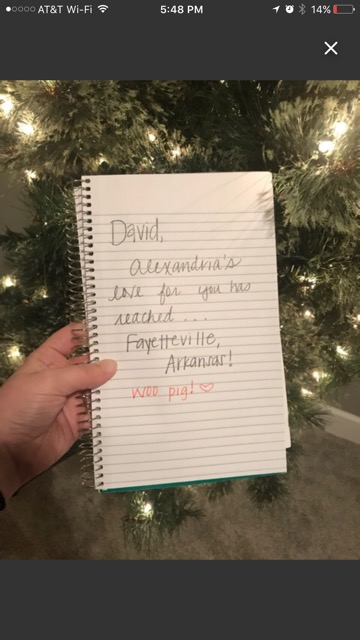 AT&T Wi-Fi 5:48 PM 14%
David,
Alexandria's
love for you has
reached...
Fayetteville,
Arkansas!
woo pig! ♡